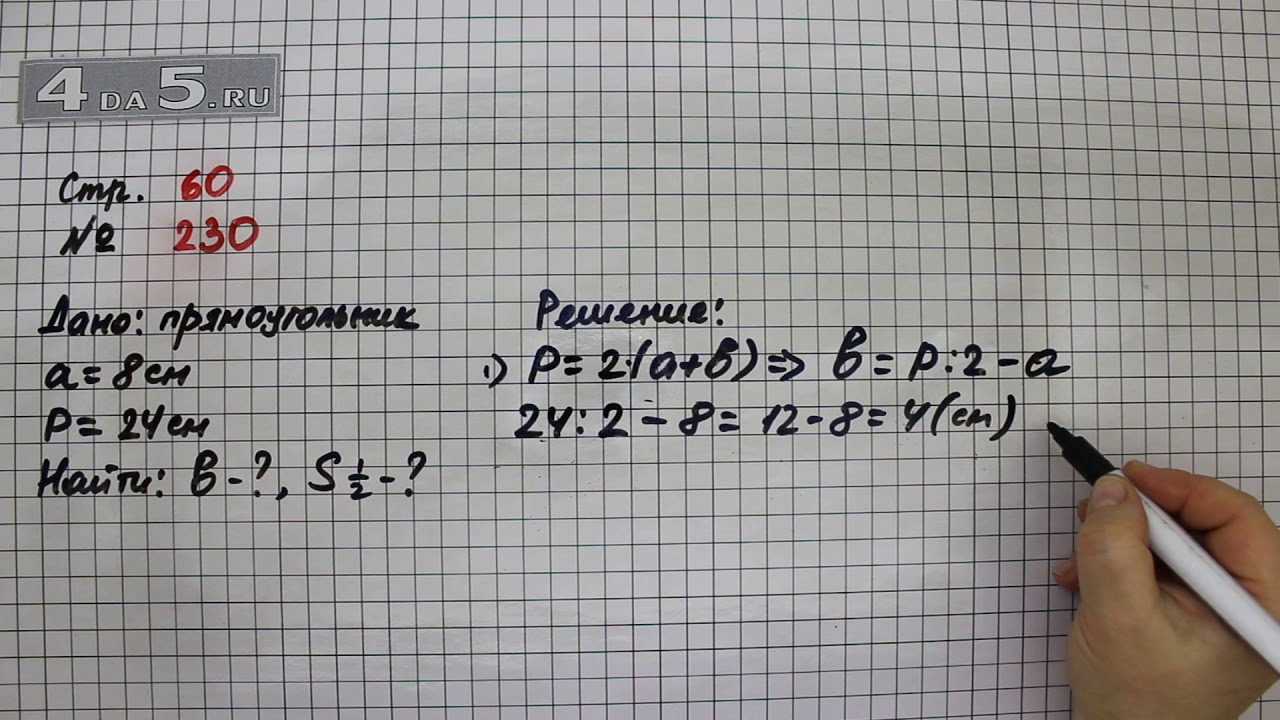 4 DA 5.RU
Стр. 60
№ 230
Дано: прямоугольник
a = 8 см
P = 24 см
Найти: в - ?, S ½ - ?
Решение:
1) P = 2·(a+в) => в = P:2 - a
24:2 - 8 = 12 - 8 = 4 (см)